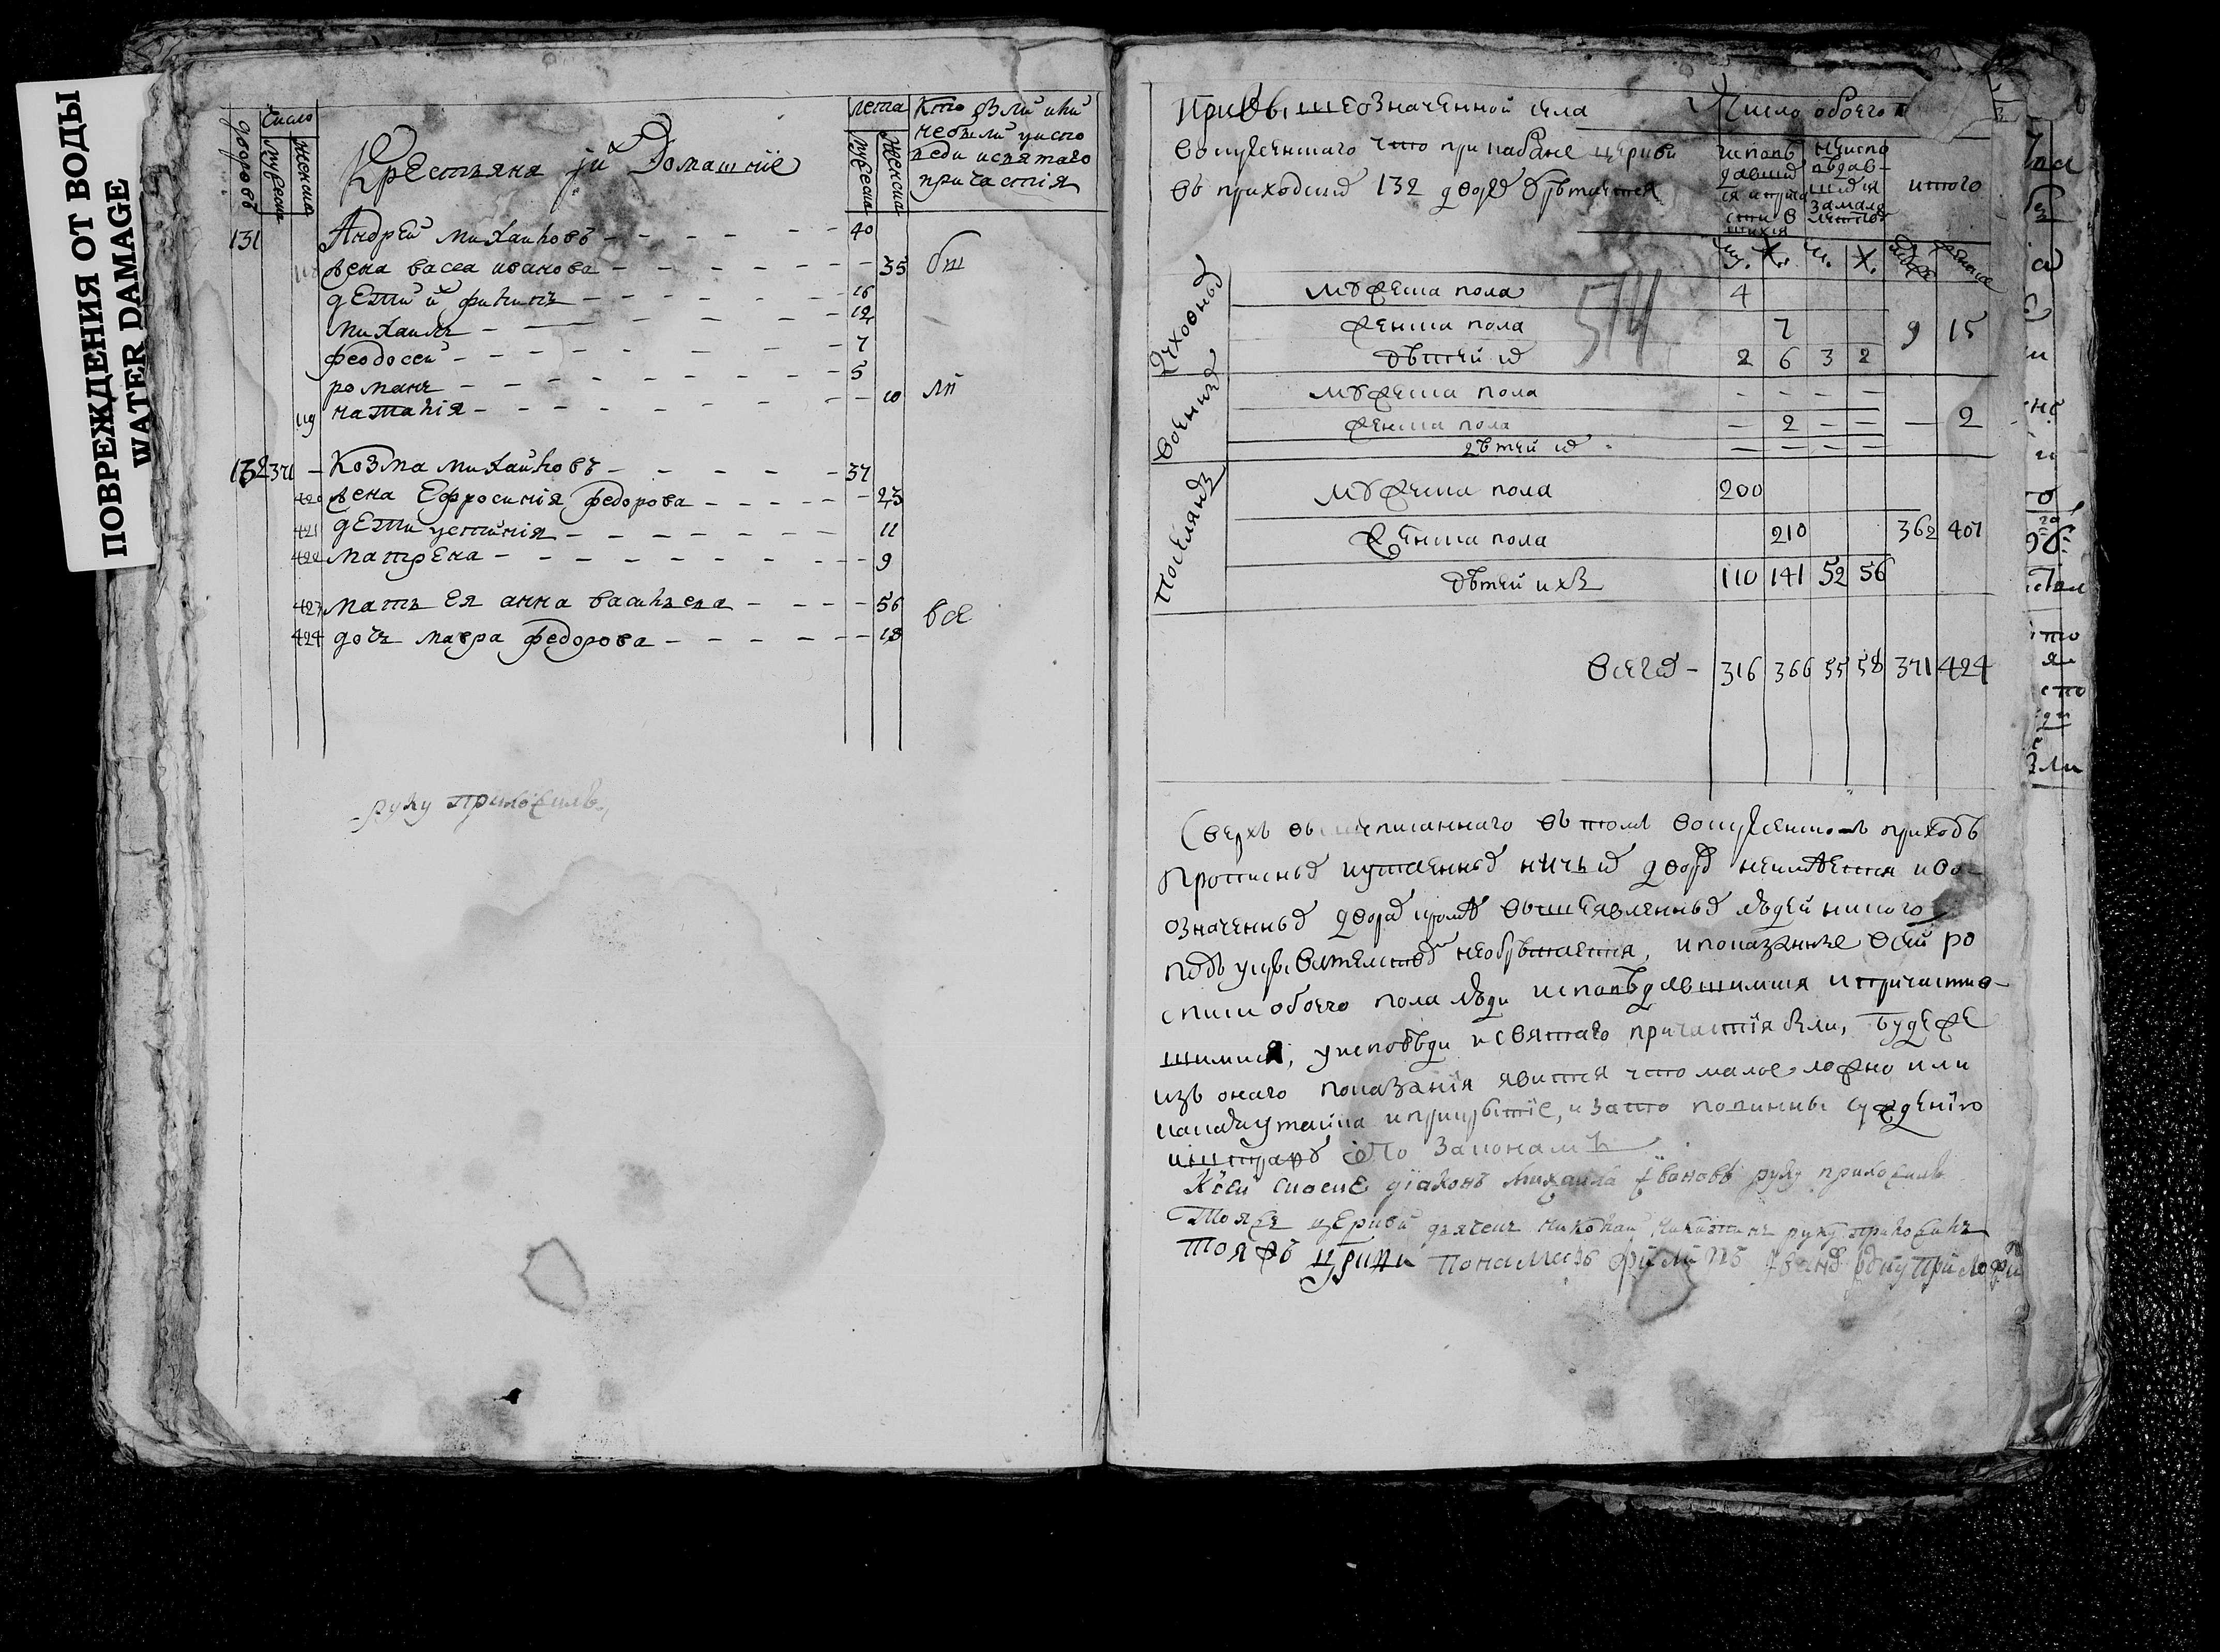 ПОВРЕЖДЕНИЯ ОТ ВОДЫ
WATER DAMAGE
дворовъ
Число
мужеска
женска
Крестьяня и Домашніе
лета
мужеска
женска
кто были и кии
небыли у испо
веди и святаго
причастія
131 Андрей михаиловъ 40
жена васса иванова 35 был
дети и филипъ 16
михаилъ 12
феодосеи 7
романъ 5
119 наталія 10
132 371 козма михаиловъ 37
420 жена Ефросинія федорова 23
421 дети устинія 11
422 матрена 9
423 мать ея анна васильева 56 все
424 дочь мавра федорова 18
руку приложилъ
При вышеозначенной села
Воскресенского что при кабане церкви
въ приходскихъ 132 дворехъ обретается
Число обоего
исповедавшихся и причастившихся
неисповедавшихся за малолетствомъ
итого
м. ж. м. ж.
Духовныхъ
мужеска пола 4
женска пола 7 9 15
детей их 2 6 3 2
514
Военных
мужеска пола - - - -
женска пола - 2 - - - 2
детей их - - - -
Поселянъ
мужеска пола 200
женска пола 210 362 407
детей ихъ 110 141 52 56
Всехъ - 316 366 55 58 371 424
Сверхъ вышеписаннаго въ томъ воскресенскомъ приходѣ
прописных и утаенных ничьих дворѣ неимѣется и во
означенных дворах кромѣ вышеявленных людей никого
подъ укрывателством необретается, и показанные всей ро
списи обоего пола люди исповѣдавшимися и причастив
шимися, у исповѣди и святаго причастія были, буде же
изъ онаго показанія явится что малое ложно или
какая утаика и прикрытіе, и за то повинны суждению
и штрафу по законамъ
К сей сказке діаконъ Михаила Ивановъ руку приложилъ
Тоя же церкви дьячекъ николаи никитинъ руку приложилъ
Тоя жъ церкви понамарь филипъ Иванов руку приложи